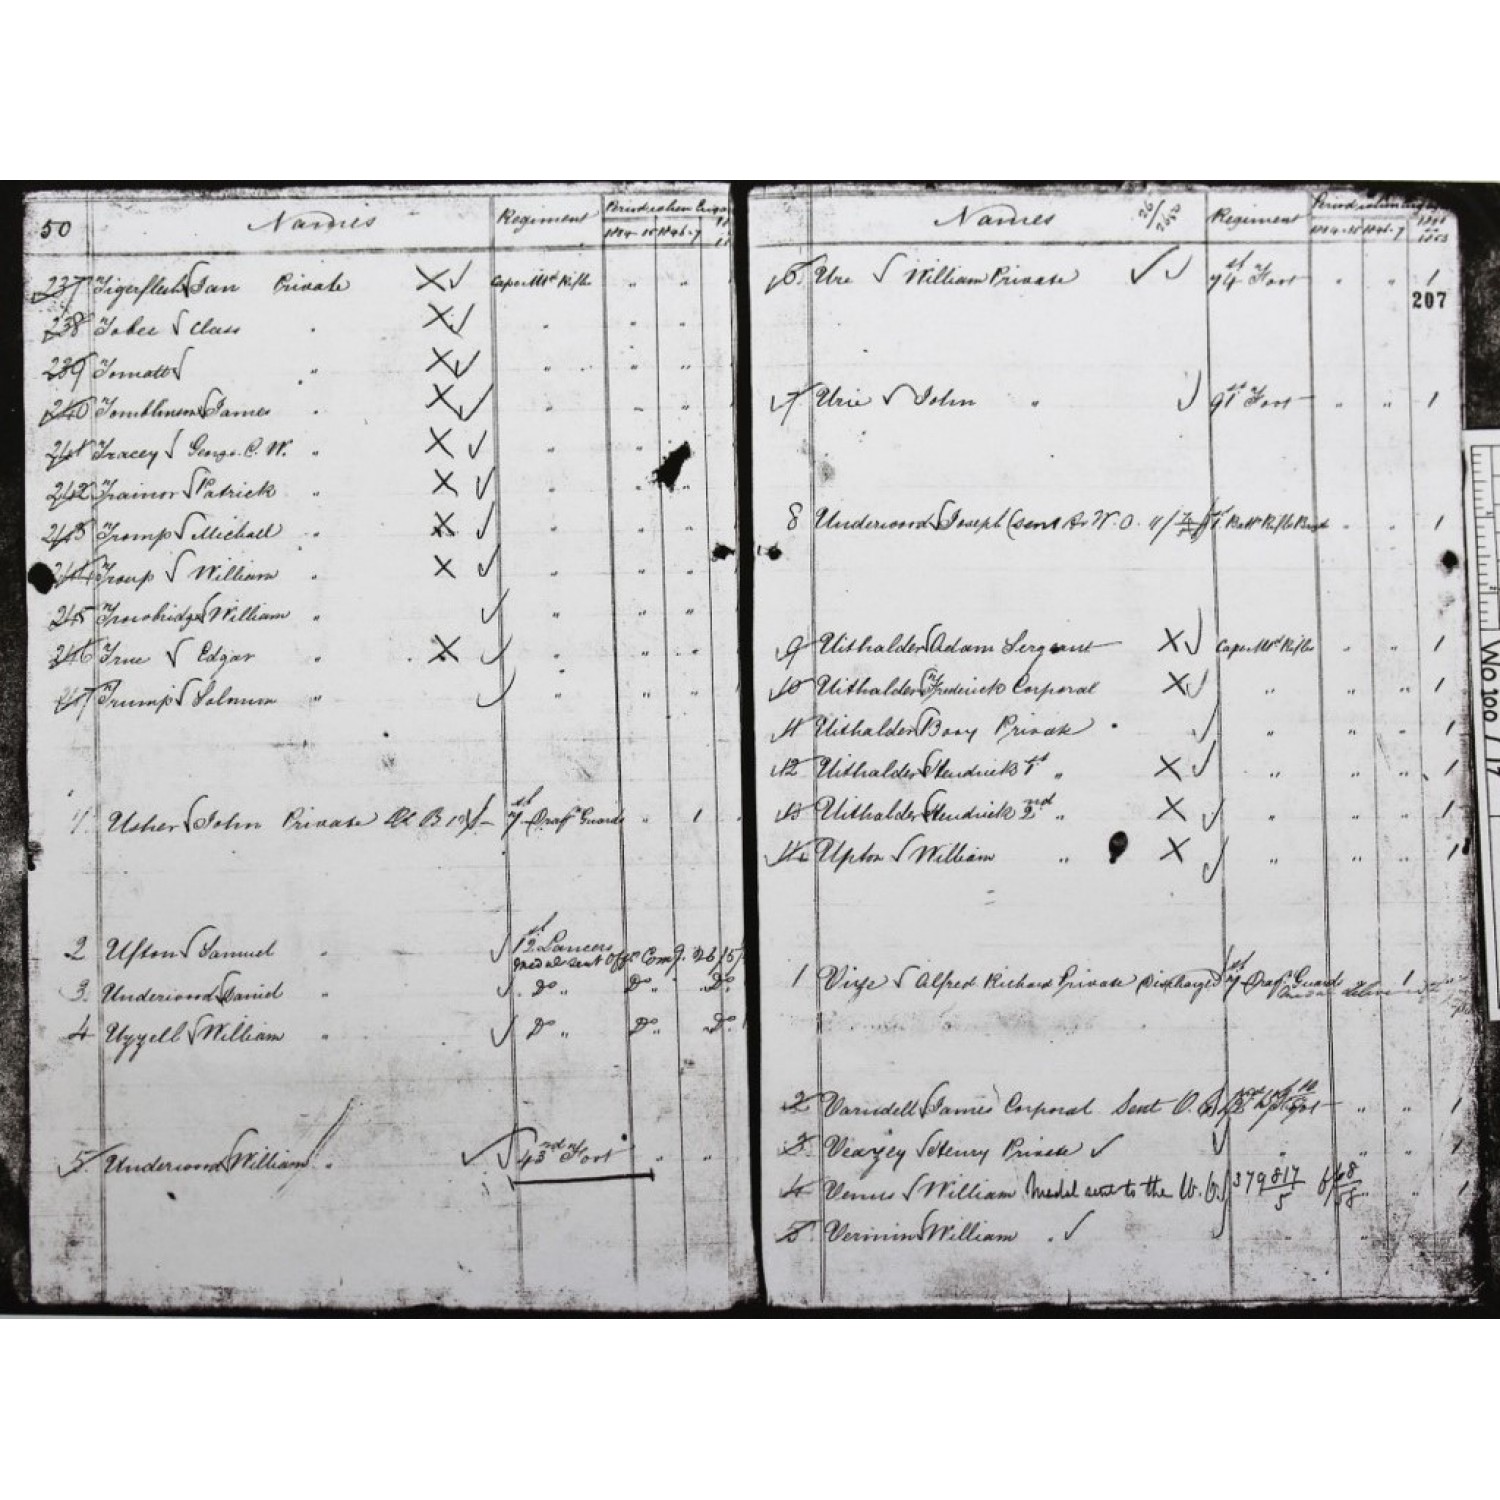 50 Names Regiment Period when Engd
1834-35 1846-7
237 Tigerflesh Jan Private Cape Mtd Rifles " "
238 Tobee Class " " " "
239 Tomatt " " " "
240 Tomblinson James " " " "
241 Tracey George C. W. " " " "
242 Trainor Patrick " " " "
243 Tromp Michall " " " "
244 Troup William " " " "
245 Trowbridge William " " " "
246 True Edgar " " " "
247 Trump Solmum " " " "
1. Usher John Private 7 Dragn Guards " 1
2 Ufton Samuel " 12 Lancers
medal sent Offr Comg. 26/5
3. Underwood Daniel " Do " Do " Do
4 Uzzell William " Do " Do " Do
5 Underwood William " 43rd Foot " "
Names Regiment Period when
1834-35 1846-7 1853
6. Ure William Private 74 Foot " " 1
207
7 Urie John " 91st Foot " " 1
8 Underwood Joseph (sent to W. O. 1 Batt Rifle Brigd " " 1
9 Uithalder Adam Sergeant Cape Mtd Rifles " " 1
10 Uithalder Frederick Corporal " " " 1
11 Uithalder Booy Private " " " 1
12 Uithalder Hendrick 1st " " " " 1
13 Uithalder Hendrick 2nd " " " " 1
14 Upton William " " " " 1
1 Virje Alfred Richard Private Discharged 7 Dragn Guards " 1
2 Varndell James Corporal Sent Foot " " 1
3 Veazey Henry Private " " " 1
4 Venus William Medal sent to the W. O. 379 817/5 6/68/58 " " 1
5 Vermin William " " "
WO 100 / 17